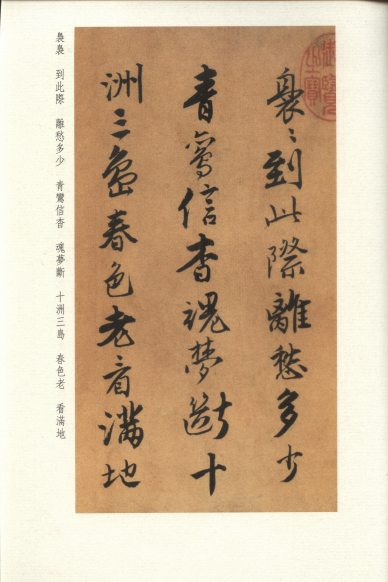 裊〻到此際離愁多少
青鸞信杳魂夢斷十
洲三島春色老看滿地
裊裊 到此際 離愁多少 青鸞信杳 魂夢斷 十洲三島 春色老 看滿地